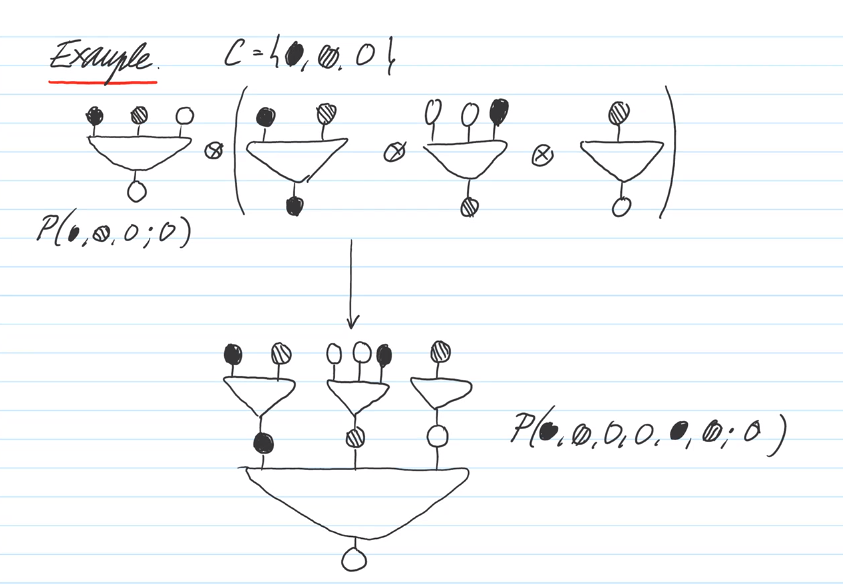 Example. C = {●, ◍, ○}
⊗ ( ⊗ ⊗ )
P(●, ◍, ○; ○)
P(●, ◍, ○, ○, ●, ◍; ○)